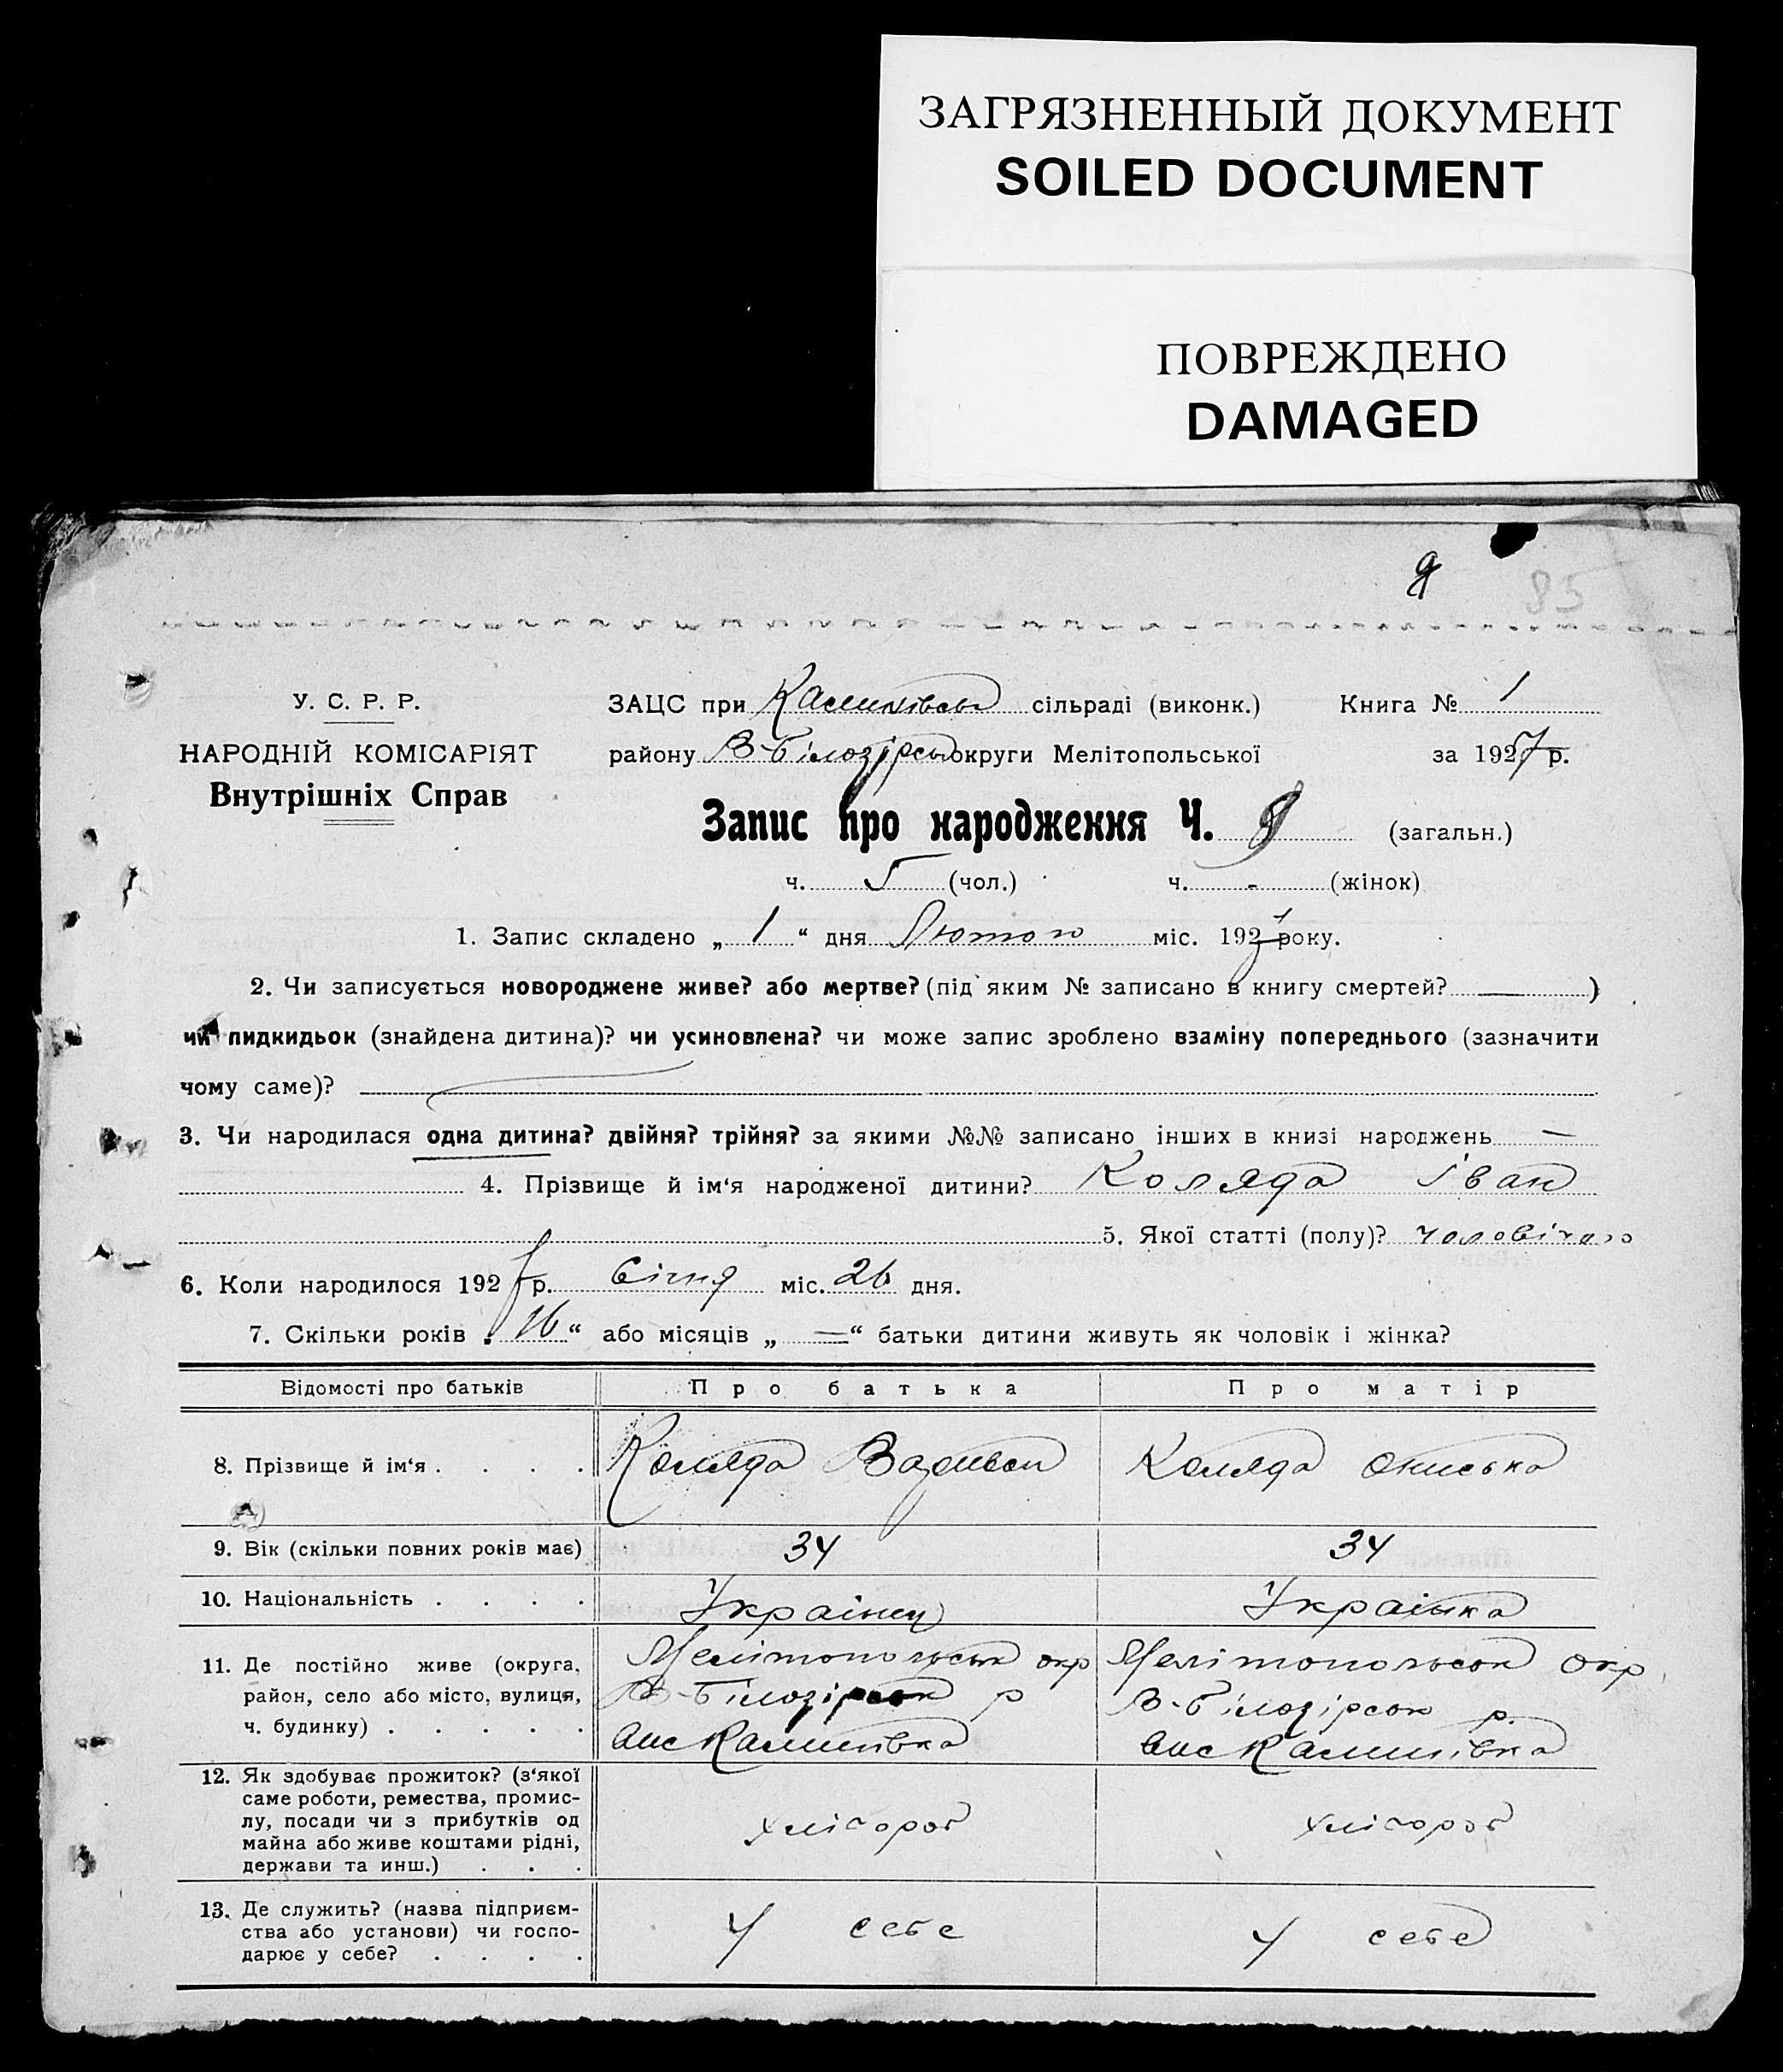 ЗАГРЯЗНЕННЫЙ ДОКУМЕНТ
SOILED DOCUMENT
ПОВРЕЖДЕНО
DAMAGED
9 85
У. С. Р. Р.
НАРОДНІЙ КОМІСАРІЯТ
Внутрішніх Справ
ЗАЦС при сільраді (виконк.) Книга № 1
району В-Білозірськ округи Мелітопольської за 1927 р.
Запис про народження Ч. 9 (загальн.)
ч. 5 (чол.) ч. - (жінок)
1. Запис складено „ 1 “ дня Лютого міс. 1927 року.
2. Чи записується новороджене живе? або мертве? (під яким № записано в книгу смертей? — )
чи пидкидьок (знайдена дитина)? чи усиновлена? чи може запис зроблено взаміну попереднього (зазначити
чому саме)?
3. Чи народилася одна дитина? двійня? трійня? за якими №№ записано інших в книзі народжень —
4. Прізвище й ім‘я народженої дитини? Коляда Іван
5. Якої статті (полу)? чоловічого
6. Коли народилося 1927 р. Січня міс. 26 дня.
7. Скільки років „ 16 “ або місяців „ — “ батьки дитини живуть як чоловік і жінка?
Відомості про батьків Про батька Про матір
8. Прізвище й ім‘я . . . . Коляда Коляда Ониська
9. Вік (скільки повних років має) 34 34
10. Національність . . . . Українец Українка
11. Де постійно живе (округа, район, село або місто, вулиця, ч. будинку) . . . . .
Мелітопольськ окр
В-Білозірськ р
Калинівка
Мелітопольськ окр
В-Білозірськ р.
Калинівка
12. Як здобуває прожиток? (з‘якої
саме роботи, ремества, промис-
лу, посади чи з прибутків од
майна або живе коштами рідні,
держави та инш.) . . .
хлібороб хлібороб
13. Де служить? (назва підприєм-
ства або установи) чи госпо-
дарює у себе? . . . .
У себе У себе